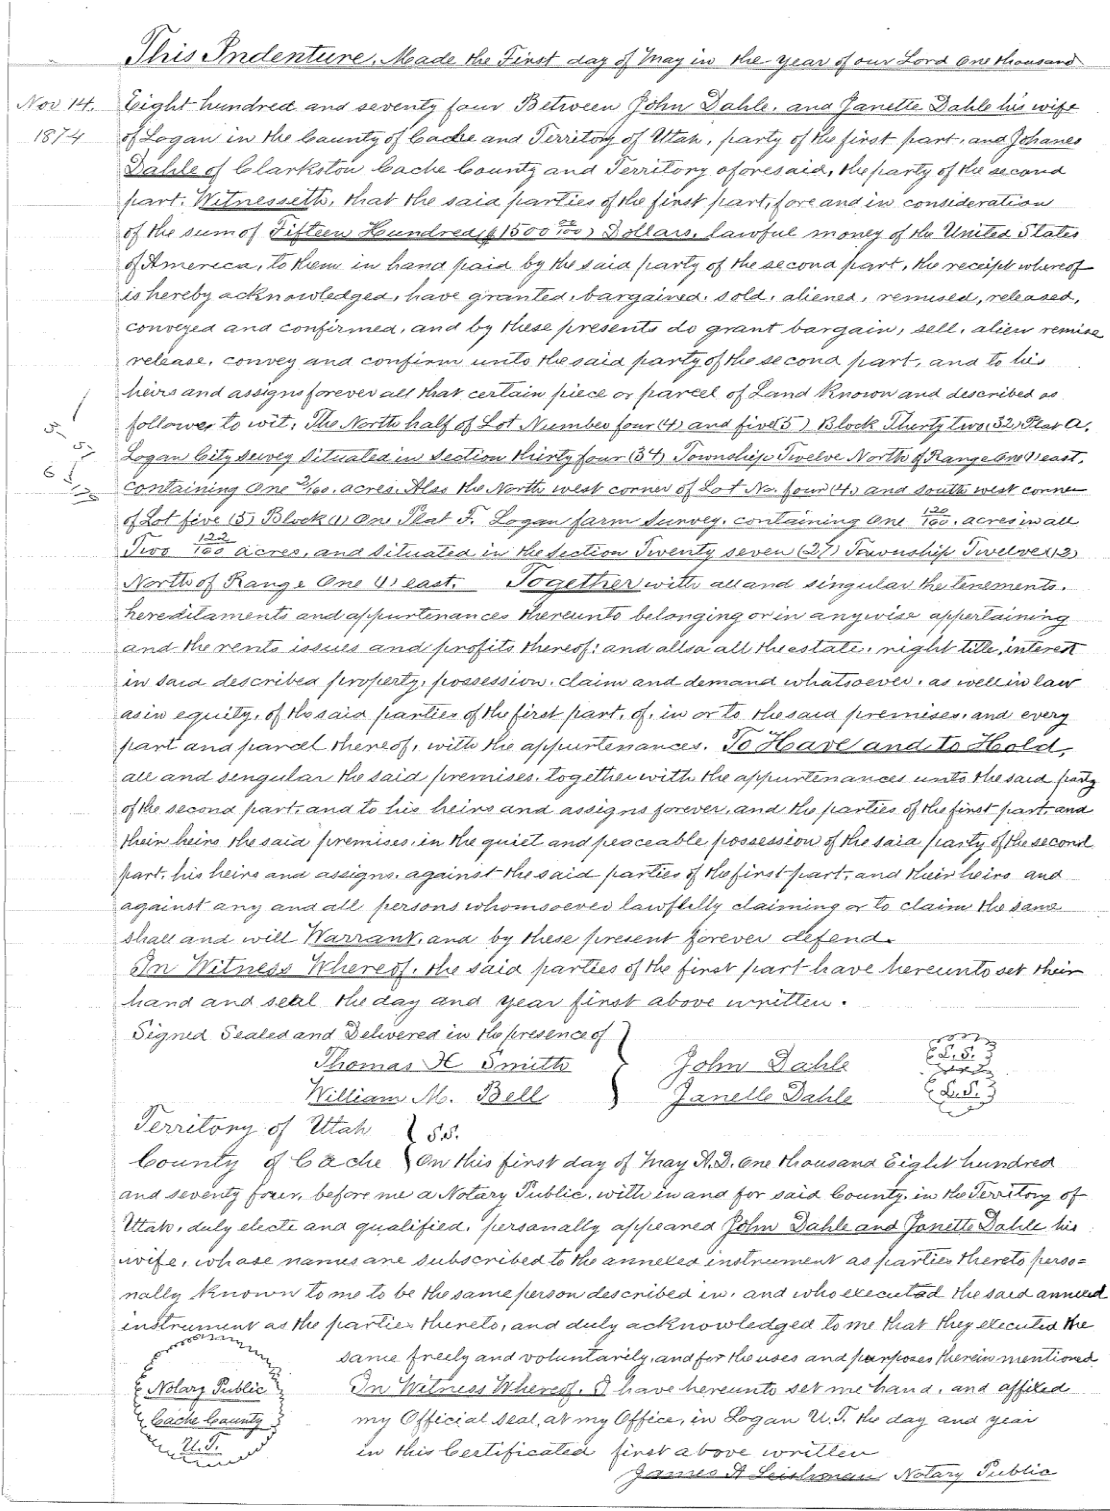 This Indenture, Made the First day of May in the year of our Lord One thousand
Nov 14. Eight hundred and seventy four Between John Dahle, and Janette Dahle his wife
1874 of Logan in the County of Cache and Territory of Utah, party of the first part, and Johanes
Dahle of Clarkston Cache County and Territory aforesaid, the party of the second
part. Witnesseth, that the said parties of the first part, fore and in consideration
of the sum of Fifteen Hundred ($1500 00/100) Dollars, lawful money of the United States
of America, to them in hand paid by the said party of the second part, the receipt whereof
is hereby acknowledged, have granted, bargained, sold, aliened, remised, released,
conveyed and confirmed, and by these presents do grant bargain, sell, alien remise
release, convey and confirm unto the said party of the second part, and to his
heirs and assigns forever all that certain piece or parcel of Land Known and described as
follower to wit; The North half of Lot Number four (4) and five (5) Block Thirty two (32) Plat A.
Logan City survey situated in section thirty four (34) Township Twelve North of Range One (1) east.
containing One acres. Also the North west corner of Lot No. four (4) and south west corner
of Lot five (5) Block (1) One Plat F. Logan farm Survey. containing One 120/160 acres in all
Two 122/160 acres, and situated in the Section Twenty seven (27) Township Twelve (12)
North of Range One (1) east. Together with all and singular the tenements.
hereditaments and appurtenances thereunto belonging or in anywise appertaining
and the rents issues and profits thereof; and allso all the estate, right title, interest
in said described property, possession, claim and demand whatsoever, as well in law
as in equity, of the said parties of the first part, of, in or to the said premises, and every
part and parcel thereof, with the appurtenances. To Have and to Hold,
all and singular the said premises, together with the appurtenances unto the said party
of the second part, and to his heirs and assigns forever, and the parties of the first part, and
their heirs the said premises, in the quiet and peaceable possession of the said party of the second
part, his heirs and assigns, against the said parties of the first part, and their heirs and
against any and all persons whomsoever lawfully claiming or to claim the same
shall and will Warrant, and by these present forever defend.
In Witness Whereof, the said parties of the first part have hereunto set their
hand and seal the day and year first above written.
Signed Sealed and Delivered in the presence of
Thomas H Smith John Dahle L.S.
William M. Bell Janette Dahle L.S.
Territory of Utah } S.S.
County of Cache } On this first day of May A.D. One thousand Eight hundred
and seventy four, before me a Notary Public, with in and for said County, in the Territory of
Utah, duly electe and qualified, personally appeared John Dahle and Janette Dahle his
wife, whose names are subscribed to the annexed instrument as parties thereto perso=
nally Known to me to be the same person described in, and who executed the said annexed
instrument as the parties thereto, and duly acknowledged to me that they executed the
same freely and voluntarily, and for the uses and purposes therein mentioned
Notary Public In Witness Whereof, I have hereunto set me hand, and affixed
Cache County my Official seal, at my Office, in Logan U.T. the day and year
U.T. in this Certificated first above written
James A Leishman Notary Public